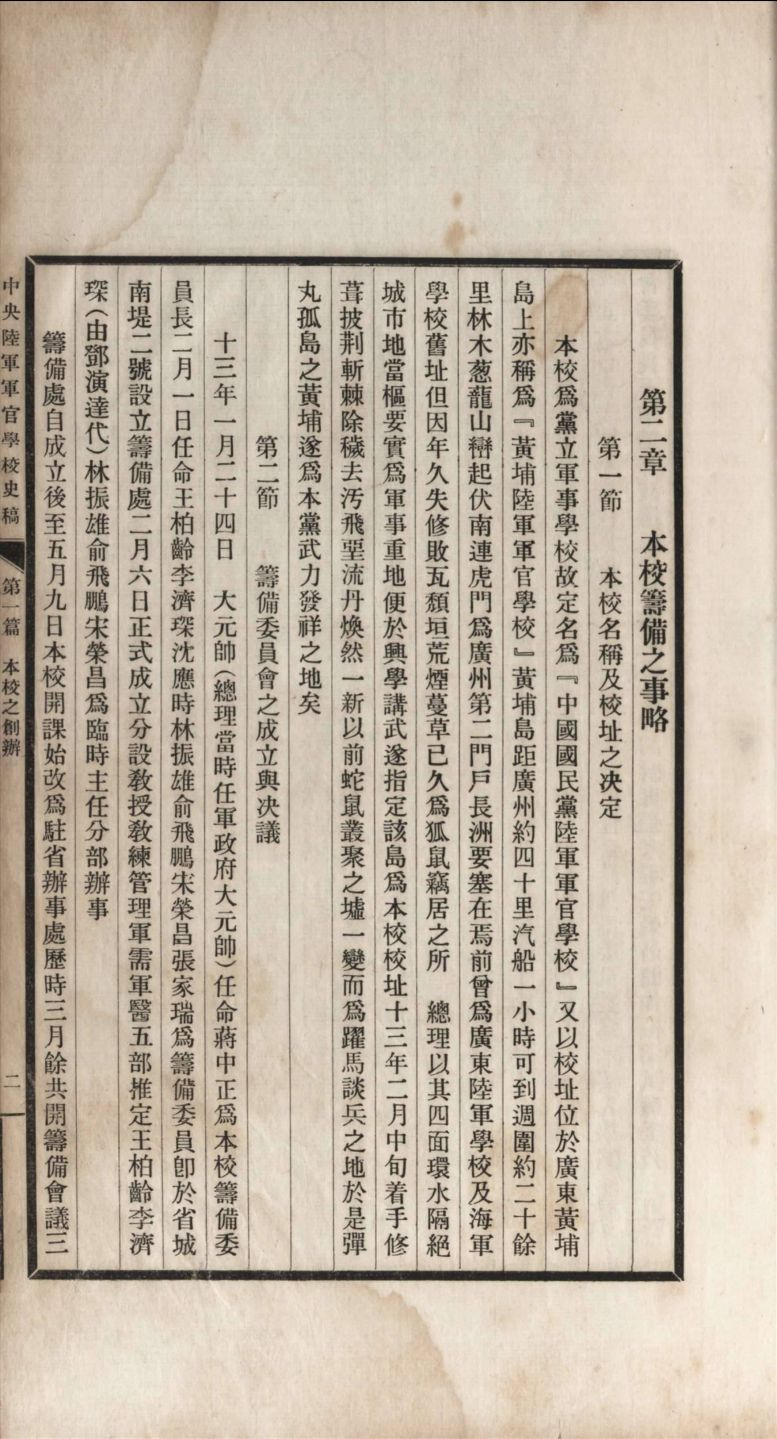 第二章　本校籌備之事略
第一節　本校名稱及校址之决定
本校爲黨立軍事學校故定名爲『中國國民黨陸軍軍官學校』又以校址位於廣東黃埔
島上亦稱爲『黃埔陸軍軍官學校』黃埔島距廣州約四十里汽船一小時可到週圍約二十餘
里林木葱蘢山巒起伏南連虎門爲廣州第二門戶長洲要塞在焉前曾爲廣東陸軍學校及海軍
學校舊址但因年久失修敗瓦頹垣荒煙蔓草已久爲狐鼠竊居之所　總理以其四面環水隔絕
城市地當樞要實爲軍事重地便於興學講武遂指定該島爲本校校址十三年二月中旬着手修
葺披荆斬棘除穢去汚飛堊流丹煥然一新以前蛇鼠叢聚之墟一變而爲躍馬談兵之地於是彈
丸孤島之黃埔遂爲本黨武力發祥之地矣
第二節　籌備委員會之成立與决議
十三年一月二十四日　大元帥（總理當時任軍政府大元帥）任命蔣中正爲本校籌備委
員長二月一日任命王柏齡李濟琛沈應時林振雄俞飛鵬宋榮昌張家瑞爲籌備委員卽於省城
南堤二號設立籌備處二月六日正式成立分設敎授敎練管理軍需軍醫五部推定王柏齡李濟
琛（由鄧演達代）林振雄俞飛鵬宋榮昌爲臨時主任分部辦事
籌備處自成立後至五月九日本校開課始改爲駐省辦事處歷時三月餘共開籌備會議三
中央陸軍軍官學校史稿　第一篇　本校之創辦　二